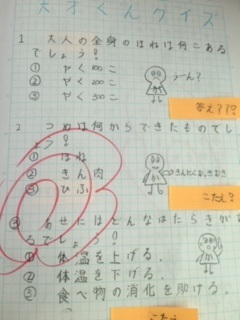 天才くんクイズ
1 大人の全身のほねは何こある
でしょう?
① やく100こ
② やく200こ
③ やく300こ
うーん??
答え???
2 つめは何からできたものでし
ょう?
① ほね
② きん肉
③ ひふ
こたえ?
③ あせにはどんなはたらきが
るでしょう!
① 体温を上げる。
② 体温を下げる。
③ 食べ物の消化を助ける。
こたえ